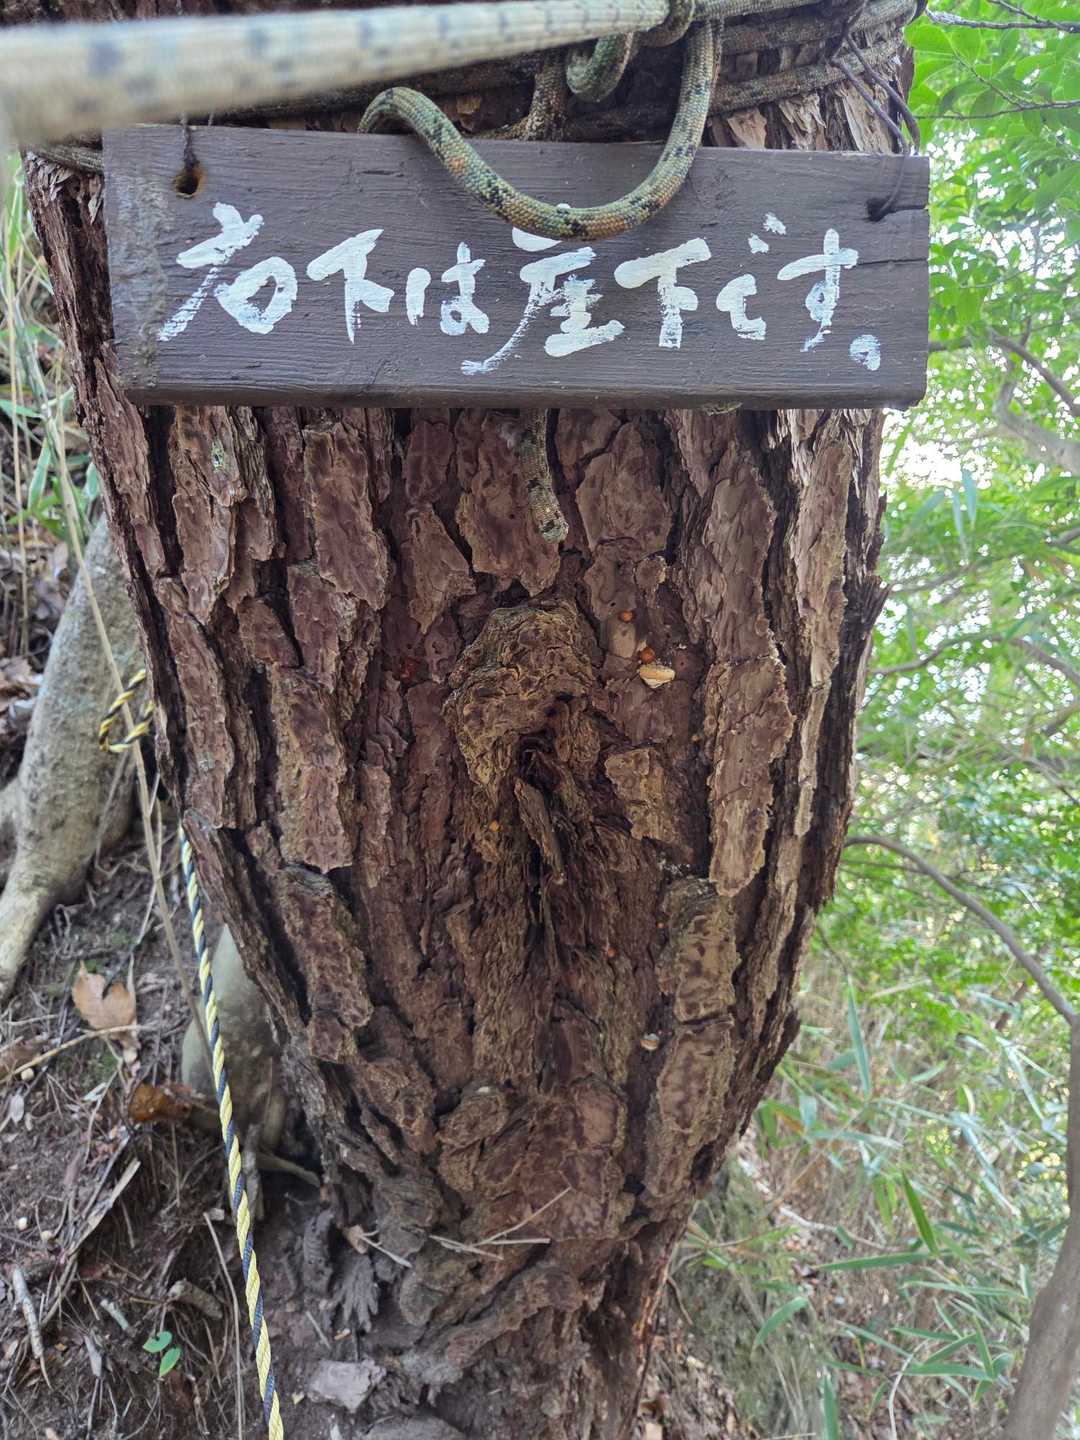 右下は崖下です。